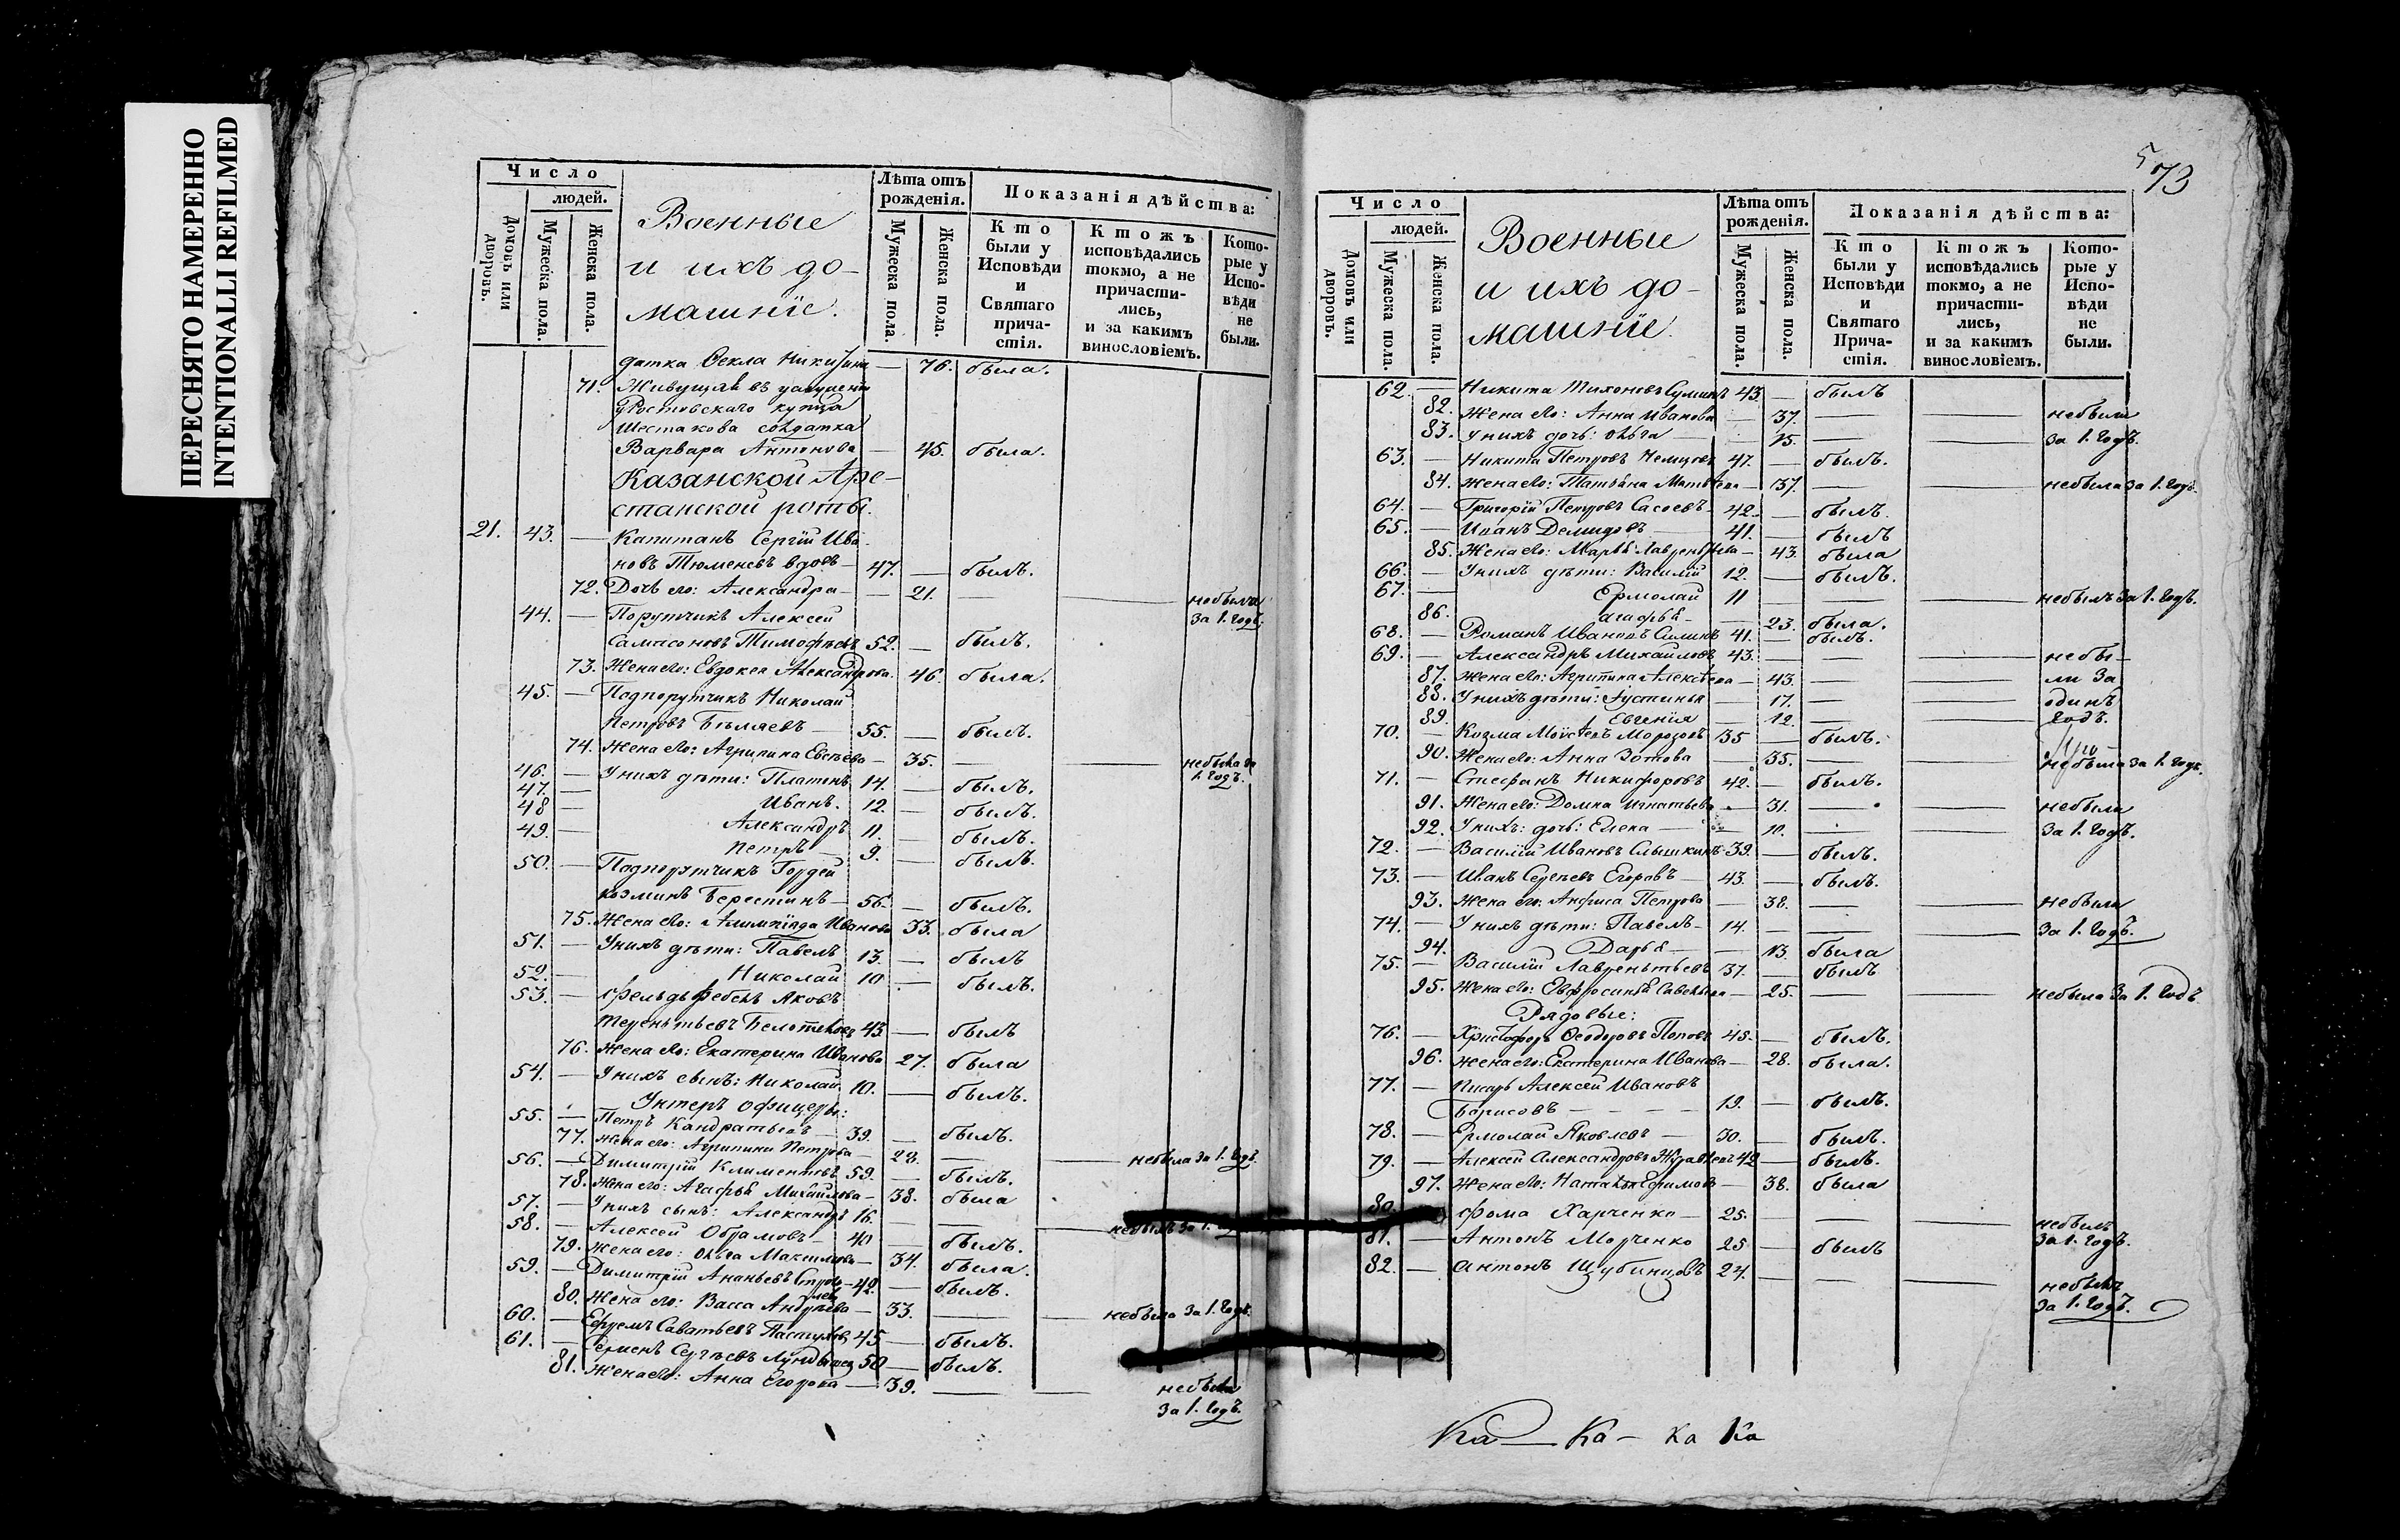 ПЕРЕСНЯТО НАМЕРЕННО
INTENTIONALLI REFILMED
Число
людей.
Домовъ или дворовъ.
Мужеска пола.
Женска пола.
Военные
и ихъ до-
машнїе.
Лѣта отъ
рожденія.
Мужеска пола.
Женска пола.
Показанія дѣйства:
Кто
были у
Исповѣди
и
Святаго
прича-
стія.
Ктожъ
исповѣдались
токмо, а не
причасти-
лись,
и за какимъ
винословіемъ.
Кото-
рые у
Испо-
вѣди
не
были.
датка Ѳекла Никитина — 76. была.
71. Живущая въ услуженіи
у Ростовскаго купца
Шестакова солдатка
Варвара Антонова — 45. была.
Казанской Аре-
станской роты.
21. 43. — Капитанъ Сергій Ива-
новъ Тюменевъ вдовъ — 47. — былъ.
72. Дочь его: Александра — — 21. — — небыла
за 1. годъ.
44. — Порутчикъ Алексей
Самсоновъ Тимофѣевъ 52. — былъ.
73. Жена его: Евдокея Александрова. 46. была.
45. — Подпорутчикъ Николай
Петровъ Бѣляевъ — 55. — былъ.
74. Жена его: Агрипина Евсѣева — 35. — — небыла за
1. годъ.
46. — У нихъ дѣти: Платонъ 14. — былъ.
47. — Иванъ. 12. — былъ.
48 — Александръ 11. — былъ.
49. — Петръ — 9. — былъ.
50. — Подпорутчикъ Гордей
Козминъ Берестинъ — 56. — былъ.
75. Жена его: Алимпіада Иванова 33. была
51. — У нихъ дѣти: Павелъ 13. — былъ
52. — Николай 10 — былъ.
53. — Фельдъфебель Яковъ
Терентьевъ 43. — былъ
76. Жена его: Екатерина Иванова 27. была
54. — У нихъ сынъ: Николай 10. — былъ.
Унтеръ офицеры:
55. — Петръ Кандратьевъ — 39. — былъ.
77. Жена его: Агрипина Петрова — 28. — — небыла за 1. годъ.
56. — Димитрій Климентовъ 59. — былъ.
78. Жена его: Агафья Михайлова — 38. была
57. — У нихъ сынъ: Александръ 16. — — небылъ за 1.
58. — Алексей Обрамовъ — 40 — былъ.
79. Жена его: Ольга Максимова — 34. была.
59. — Димитрій Ананьевъ 42. — былъ.
80. Жена его: Васса Андреева — 33. — — небыла за 1. годъ.
60. — Ефремъ Саватьевъ Пастуховъ 45 — былъ.
61. — Семенъ Сергѣевъ 50 — былъ.
81. Жена его: Анна Егорова — 39. — — небыла
за 1. годъ.
5
73
Число
людей.
Домовъ или дворовъ.
Мужеска пола.
Женска пола.
Военные
и ихъ до-
машнїе.
Лѣта отъ
рожденія.
Мужеска пола.
Женска пола.
Показанія дѣйства:
Кто
были у
Исповѣди
и
Святаго
Прича-
стія.
Ктожъ
исповѣдались
токмо, а не
причасти-
лись,
и за какимъ
винословіемъ.
Кото-
рые у
Испо-
вѣди
не
были.
62. — Никита Тихоновъ Суминъ 43. — былъ
82. Жена его: Анна Иванова — 37. — — небыли
83. У нихъ дочь: Ольга — 15. — — за 1. годъ.
63. — Никита Петровъ Немцовъ 47. — былъ.
84. Жена его: Татьяна Матвѣева — 37. — — небыла за 1. годъ.
64. — Григорій Петровъ Сасоевъ — 42. — былъ.
65. — Иванъ Демидовъ — 41. — былъ
85. Жена его: Марья Лаврентьева — 43. была
66. — У нихъ дѣти: Василій 12. — былъ.
67. — Ермолай 11 — — — небылъ за 1. годъ.
86. Агафья — 23. была.
68. — Романъ Ивановъ 41. — былъ.
69. — Александръ Михайловъ 43. — — — небы-
87. Жена его: Агрипина Алексѣева — 43. — — ли за
88. У нихъ дѣти: Іустинья — 17. — — одинъ
89. Евгенія — 12. — — годъ.
70. — Козма Моисѣевъ Морозовъ 35 — былъ.
90. Жена его: Анна Зотова — 35. — — небыла за 1. годъ.
71. — Стефанъ Никифоровъ 42. — былъ.
91. Жена его: Домна Игнатьева — 31. — — небыли
92. У нихъ: дочь: Елена — 10. — — за 1. годъ.
72. — Василій Ивановъ Слышкинъ 39. — былъ.
73. — Иванъ Сергѣевъ Егоровъ — 43. — былъ.
93. Жена его: Анфиса Петрова — 38. — — небыли
74. — У нихъ дѣти: Павелъ — 14. — — — за 1. годъ.
94. Дарья — — 13. была
75. — Василій Лаврентьевъ 37. — былъ
95. Жена его: Евфросинья Савельева — 25. — — небыла за 1. годъ
Рядовые:
76. — Христофоръ Ѳеодоровъ Поповъ 45. — былъ.
96. Жена его: Екатерина Иванова — 28. была.
77. — Писарь Алексей Ивановъ
Борисовъ — — — — 19. — былъ.
78. — Ермолай Яковлевъ — 30. — былъ.
79. — Алексей Александровъ Журавлевъ 42 — былъ.
97. Жена его: Наталья Ефимова — 38. была
80. — Фома Харченко — 25. — — — небылъ
за 1. годъ.
81. — Антонъ Морченко 25 — былъ
82. — Антонъ Шубинцовъ 24. — — — небылъ
за 1. годъ.
Ка — Ка — ка Ка